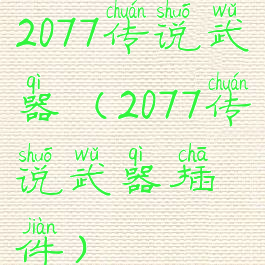 chuán shuō wǔ
2077传说武
qì chuán
器（2077传
shuō wǔ qì chā
说武器插
jiàn
件）